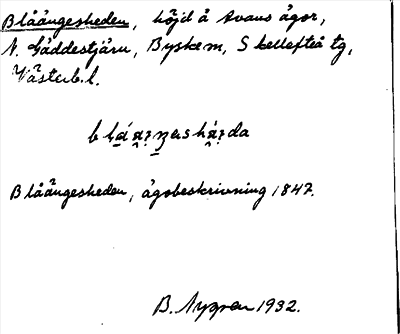 Blåängesheden, höjd å Avans ägor,
N. Gäddestjärn, Byskem, Skellefteå tg,
Västerb.l.
Blåängesheden, ägobeskrivning 1847.
B. Nygren 1932.